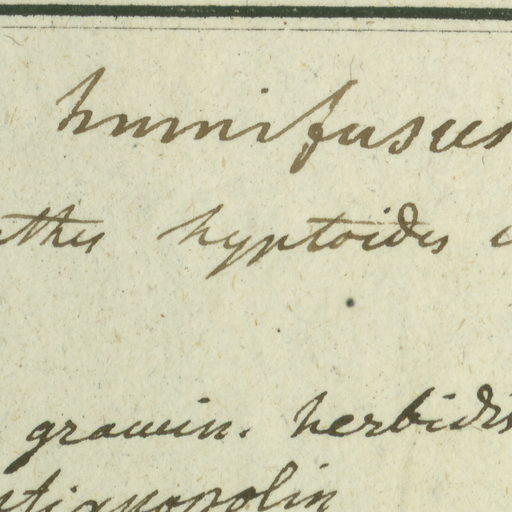 humifusus
thes hyptoides
gramin. herbidis
tianopolin